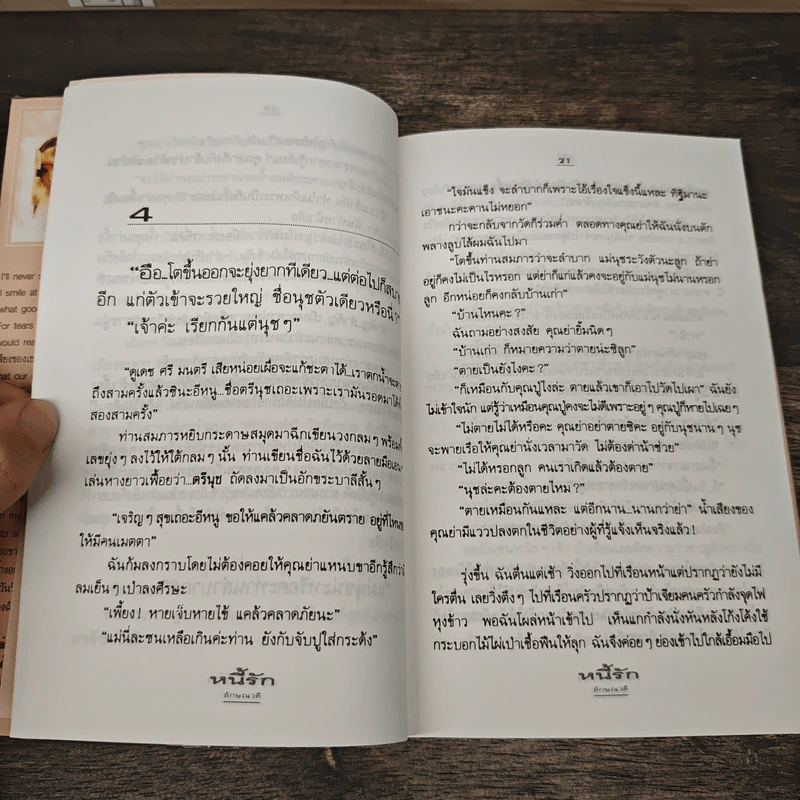 I'll never s
I smile at
what good
For tears
would rea
that our
4
"อือ...โตขึ้นออกจะยุ่งยากทีเดียว...แต่ต่อไปก็สบาย
อีก แก่ตัวเข้าจะรวยใหญ่ ชื่อนุชตัวเดียวหรือนี่?"
"เจ้าค่ะ เรียกกันแต่นุชๆ"
"ดูเดช ศรี มนตรี เสียหน่อยเผื่อจะแก้ชะตาได้...เราตกน้ำจะตา
ถึงสามครั้งแล้วซินะอีหนู...ชื่อตรีนุชเถอะเพราะเรามันรอดมาได้
สองสามครั้ง"
ท่านสมภารหยิบกระดาษสมุดมาฉีกเขียนวงกลมๆ พร้อมกั
เลขยุ่งๆ ลงไว้ให้ใต้กลมๆ นั้น ท่านเขียนชื่อฉันไว้ด้วยลายมือเอน
เล่นหางยาวเฟื้อยว่า...ตรีนุช ถัดลงมาเป็นอักขระบาลีสั้นๆ
"เจริญๆ สุขเถอะอีหนู ขอให้แคล้วคลาดภัยอันตราย อยู่ที่ไหนขอ
ให้มีคนเมตตา"
ฉันก้มลงกราบโดยไม่ต้องคอยให้คุณย่าแหนบขาอีกรู้สึกว่า
ลมเย็นๆ เป่าลงศีรษะ
"เพี้ยง! หายเจ็บหายไข้ แคล้วคลาดภัยนะ"
"แม่นี่ละซนเหลือเกินค่ะท่าน ยังกับจับปูใส่กระด้ง"
หนี้รัก
ลักษณวดี
21
"ใจมันแข็ง จะลำบากก็เพราะไอ้เรื่องใจแข็งนี้แหละ ทิฐิมานะ
เอาชนะคะคานไม่หยอก"
กว่าจะกลับจากวัดก็ร่วมค่ำ ตลอดทางคุณย่าให้ฉันนั่งบนตัก
พลางลูบไล้ผมฉันไปมา
"โตขึ้นท่านสมภารว่าจะลำบาก แม่นุชระวังตัวนะลูก ถ้าย่า
อยู่ก็คงไม่เป็นไรหรอก แต่ย่าก็แก่แล้วคงจะอยู่กับแม่นุชไม่นานหรอก
ลูก อีกหน่อยก็คงกลับบ้านเก่า"
"บ้านไหนคะ?"
ฉันถามอย่างสงสัย คุณย่ายิ้มนิดๆ
"บ้านเก่า ก็หมายความว่าตายน่ะซิลูก"
"ตายเป็นยังไงคะ?"
"ก็เหมือนกับคุณปู่ไงล่ะ ตายแล้วเขาก็เอาไปวัดไปเผา" ฉันยัง
ไม่เข้าใจนัก แต่รู้ว่าเหมือนคุณปู่คงจะไม่ดีเพราะอยู่ๆ คุณปู่ก็หายไปเฉยๆ
"ไม่ตายไม่ได้หรือคะ คุณย่าอย่าตายซิคะ อยู่กับนุชนานๆ นุช
จะพายเรือให้คุณย่านั่งเวลามาวัด ไม่ต้องด่าน้าช่วย"
"ไม่ได้หรอกลูก คนเราเกิดแล้วต้องตาย"
"นุชล่ะคะต้องตายไหม?"
"ตายเหมือนกันแหละ แต่อีกนาน...นานกว่าย่า" น้ำเสียงของ
คุณย่ามีแววปลงตกในชีวิตอย่างผู้ที่รู้แจ้งเห็นจริงแล้ว!
รุ่งขึ้น ฉันตื่นแต่เช้า วิ่งออกไปที่เรือนหน้าแต่ปรากฏว่ายังไม่มี
ใครตื่น เลยวิ่งตึงๆ ไปที่เรือนครัวปรากฏว่าป้าเจียมคนครัวกำลังจุดไฟ
หุงข้าว พอฉันโผล่หน้าเข้าไป เห็นแกกำลังนั่งหันหลังโก้งโค้งใช้
กระบอกไม้ไผ่เป่าเชื้อฟืนให้ลุก ฉันจึงค่อยๆ ย่องเข้าไปใกล้เอื้อมมือไป
หนี้รัก
ลักษณวดี